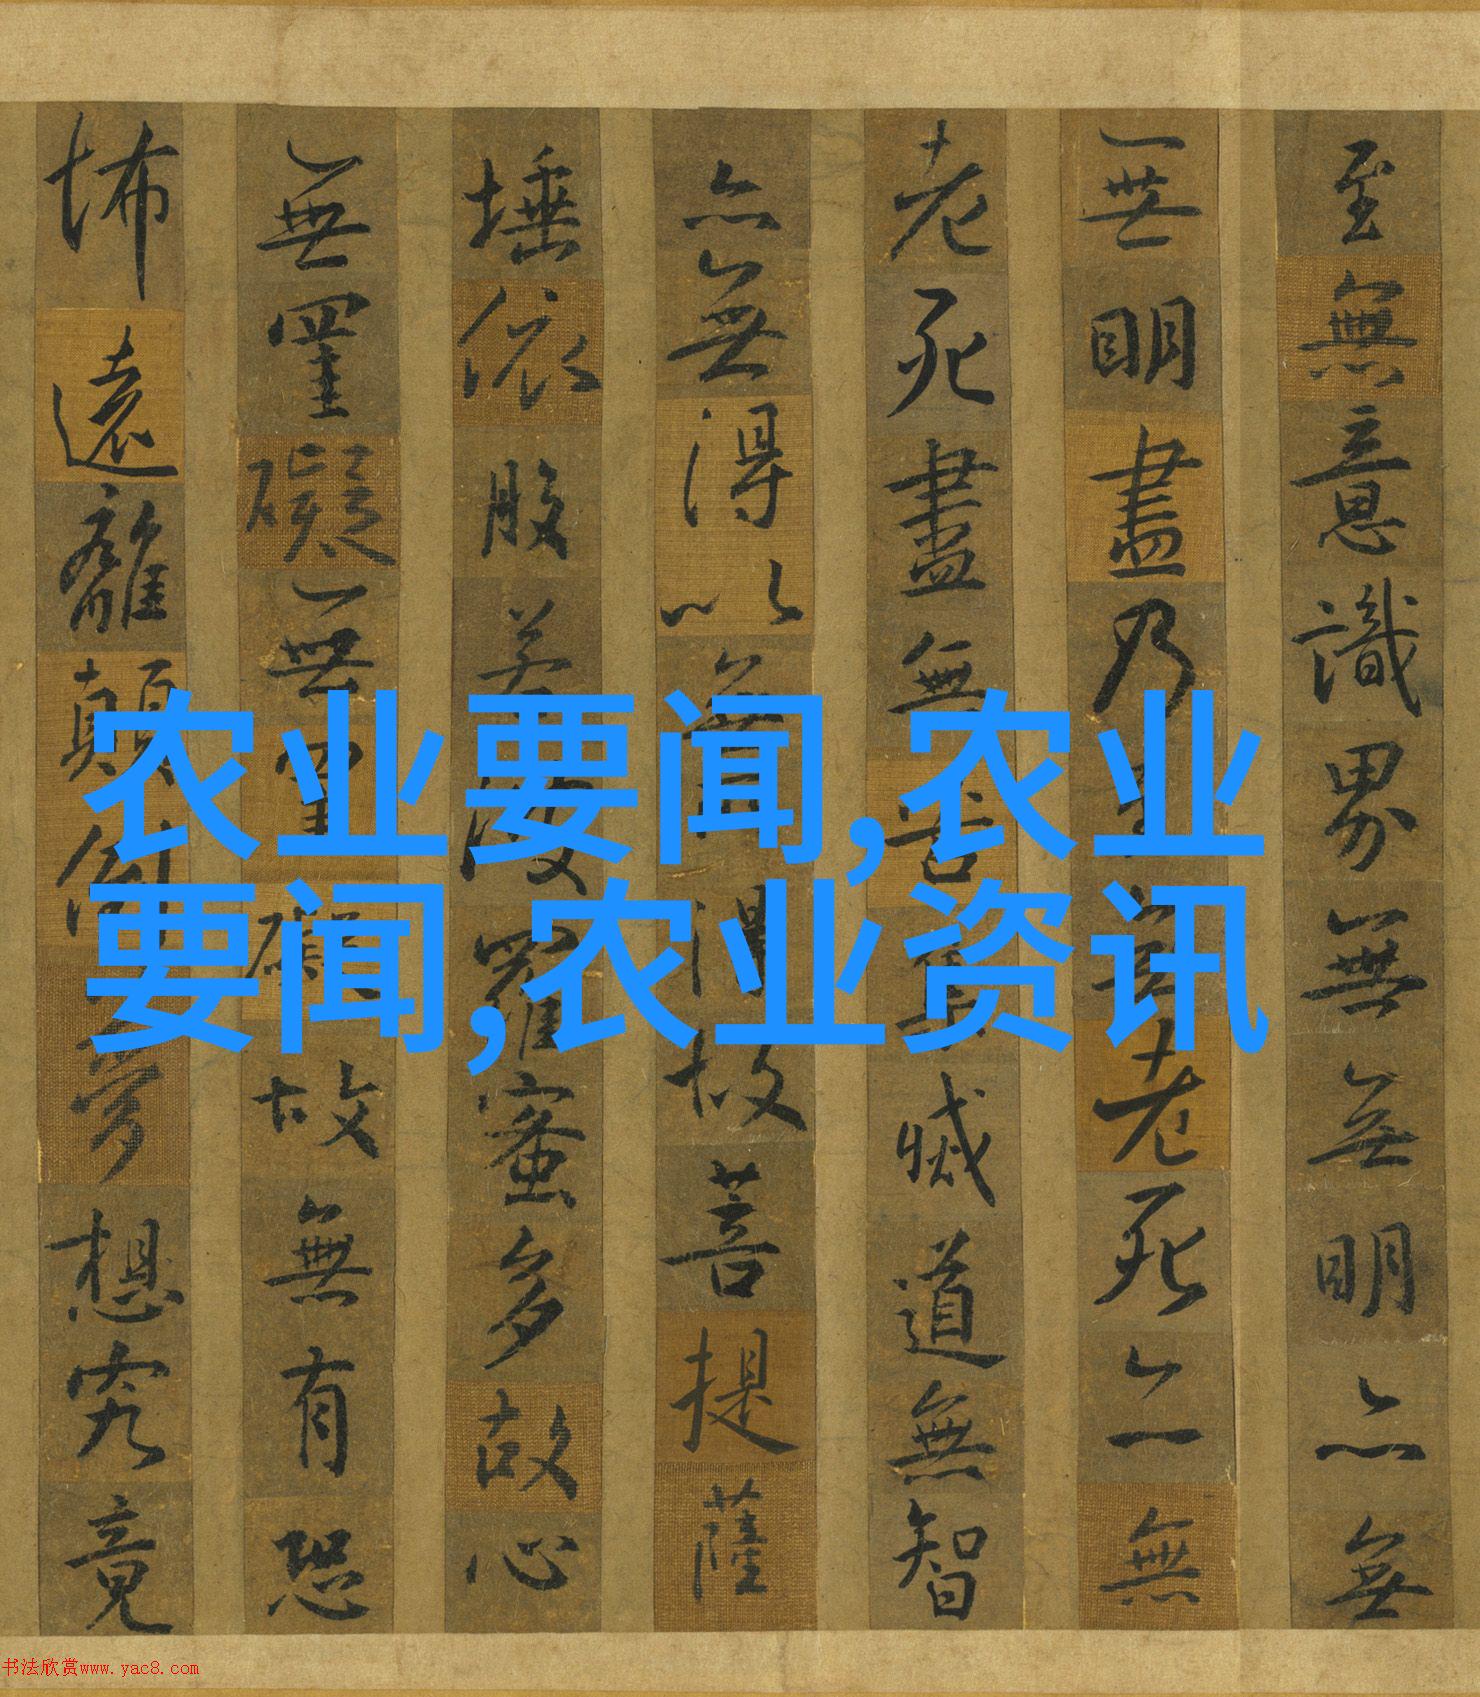 至無意識界無無明亦無
無明盡乃至無老死亦無
老死盡無苦集滅道無智
亦無得以無所得故菩提薩
埵依般若波羅蜜多故心
無罣礙無罣礙故無有恐
怖遠離顛倒夢想究竟
农业要闻,农业
要闻,农业资讯
书法欣赏www.yac8.com